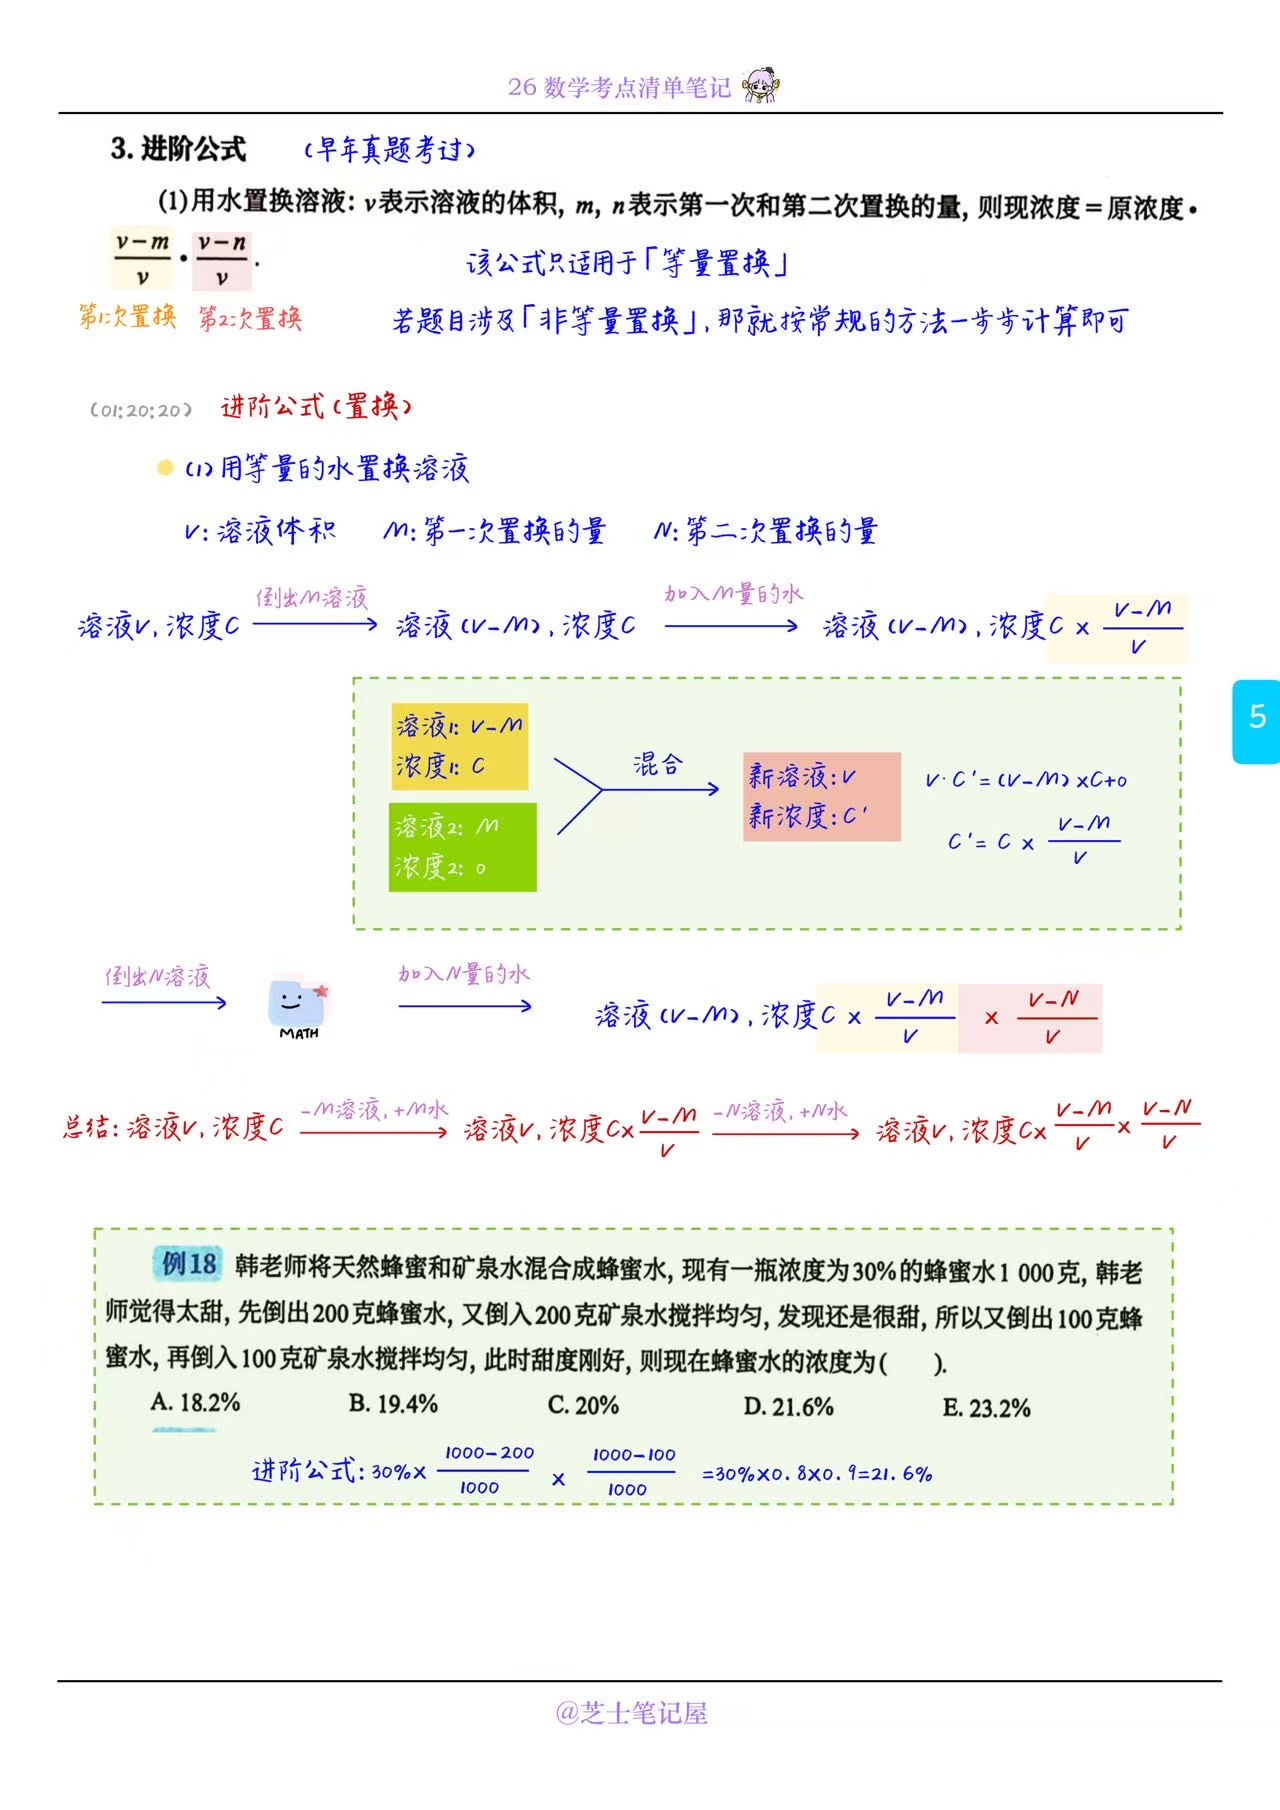 26 数学考点清单笔记
3. 进阶公式 (早年真题考过)
(1)用水置换溶液: v表示溶液的体积, m, n表示第一次和第二次置换的量, 则现浓度=原浓度·
(v-m)/v · (v-n)/v .
该公式只适用于「等量置换」
第1次置换 第2次置换
若题目涉及「非等量置换」, 那就按常规的方法一步步计算即可
(01:20:20) 进阶公式(置换)
(1) 用等量的水置换溶液
V: 溶液体积 M: 第一次置换的量 N: 第二次置换的量
倒出M溶液 加入M量的水
溶液V, 浓度C 溶液(V-M), 浓度C 溶液(V-M), 浓度C × (V-M)/V
溶液1: V-M
浓度1: C
混合
溶液2: M
浓度2: 0
新溶液: V
新浓度: C'
V·C'=(V-M)×C+0
C'= C × (V-M)/V
5
倒出N溶液 加入N量的水
MATH
溶液(V-M), 浓度C × (V-M)/V × (V-N)/V
-M溶液, +M水 -N溶液, +N水
总结: 溶液V, 浓度C 溶液V, 浓度C×(V-M)/V 溶液V, 浓度C×(V-M)/V×(V-N)/V
例18 韩老师将天然蜂蜜和矿泉水混合成蜂蜜水, 现有一瓶浓度为30%的蜂蜜水1 000克, 韩老
师觉得太甜, 先倒出200克蜂蜜水, 又倒入200克矿泉水搅拌均匀, 发现还是很甜, 所以又倒出100克蜂
蜜水, 再倒入100克矿泉水搅拌均匀, 此时甜度刚好, 则现在蜂蜜水的浓度为( ).
A. 18.2% B. 19.4% C. 20% D. 21.6% E. 23.2%
进阶公式: 30%× (1000-200)/1000 × (1000-100)/1000 =30%×0.8×0.9=21.6%
@芝士笔记屋